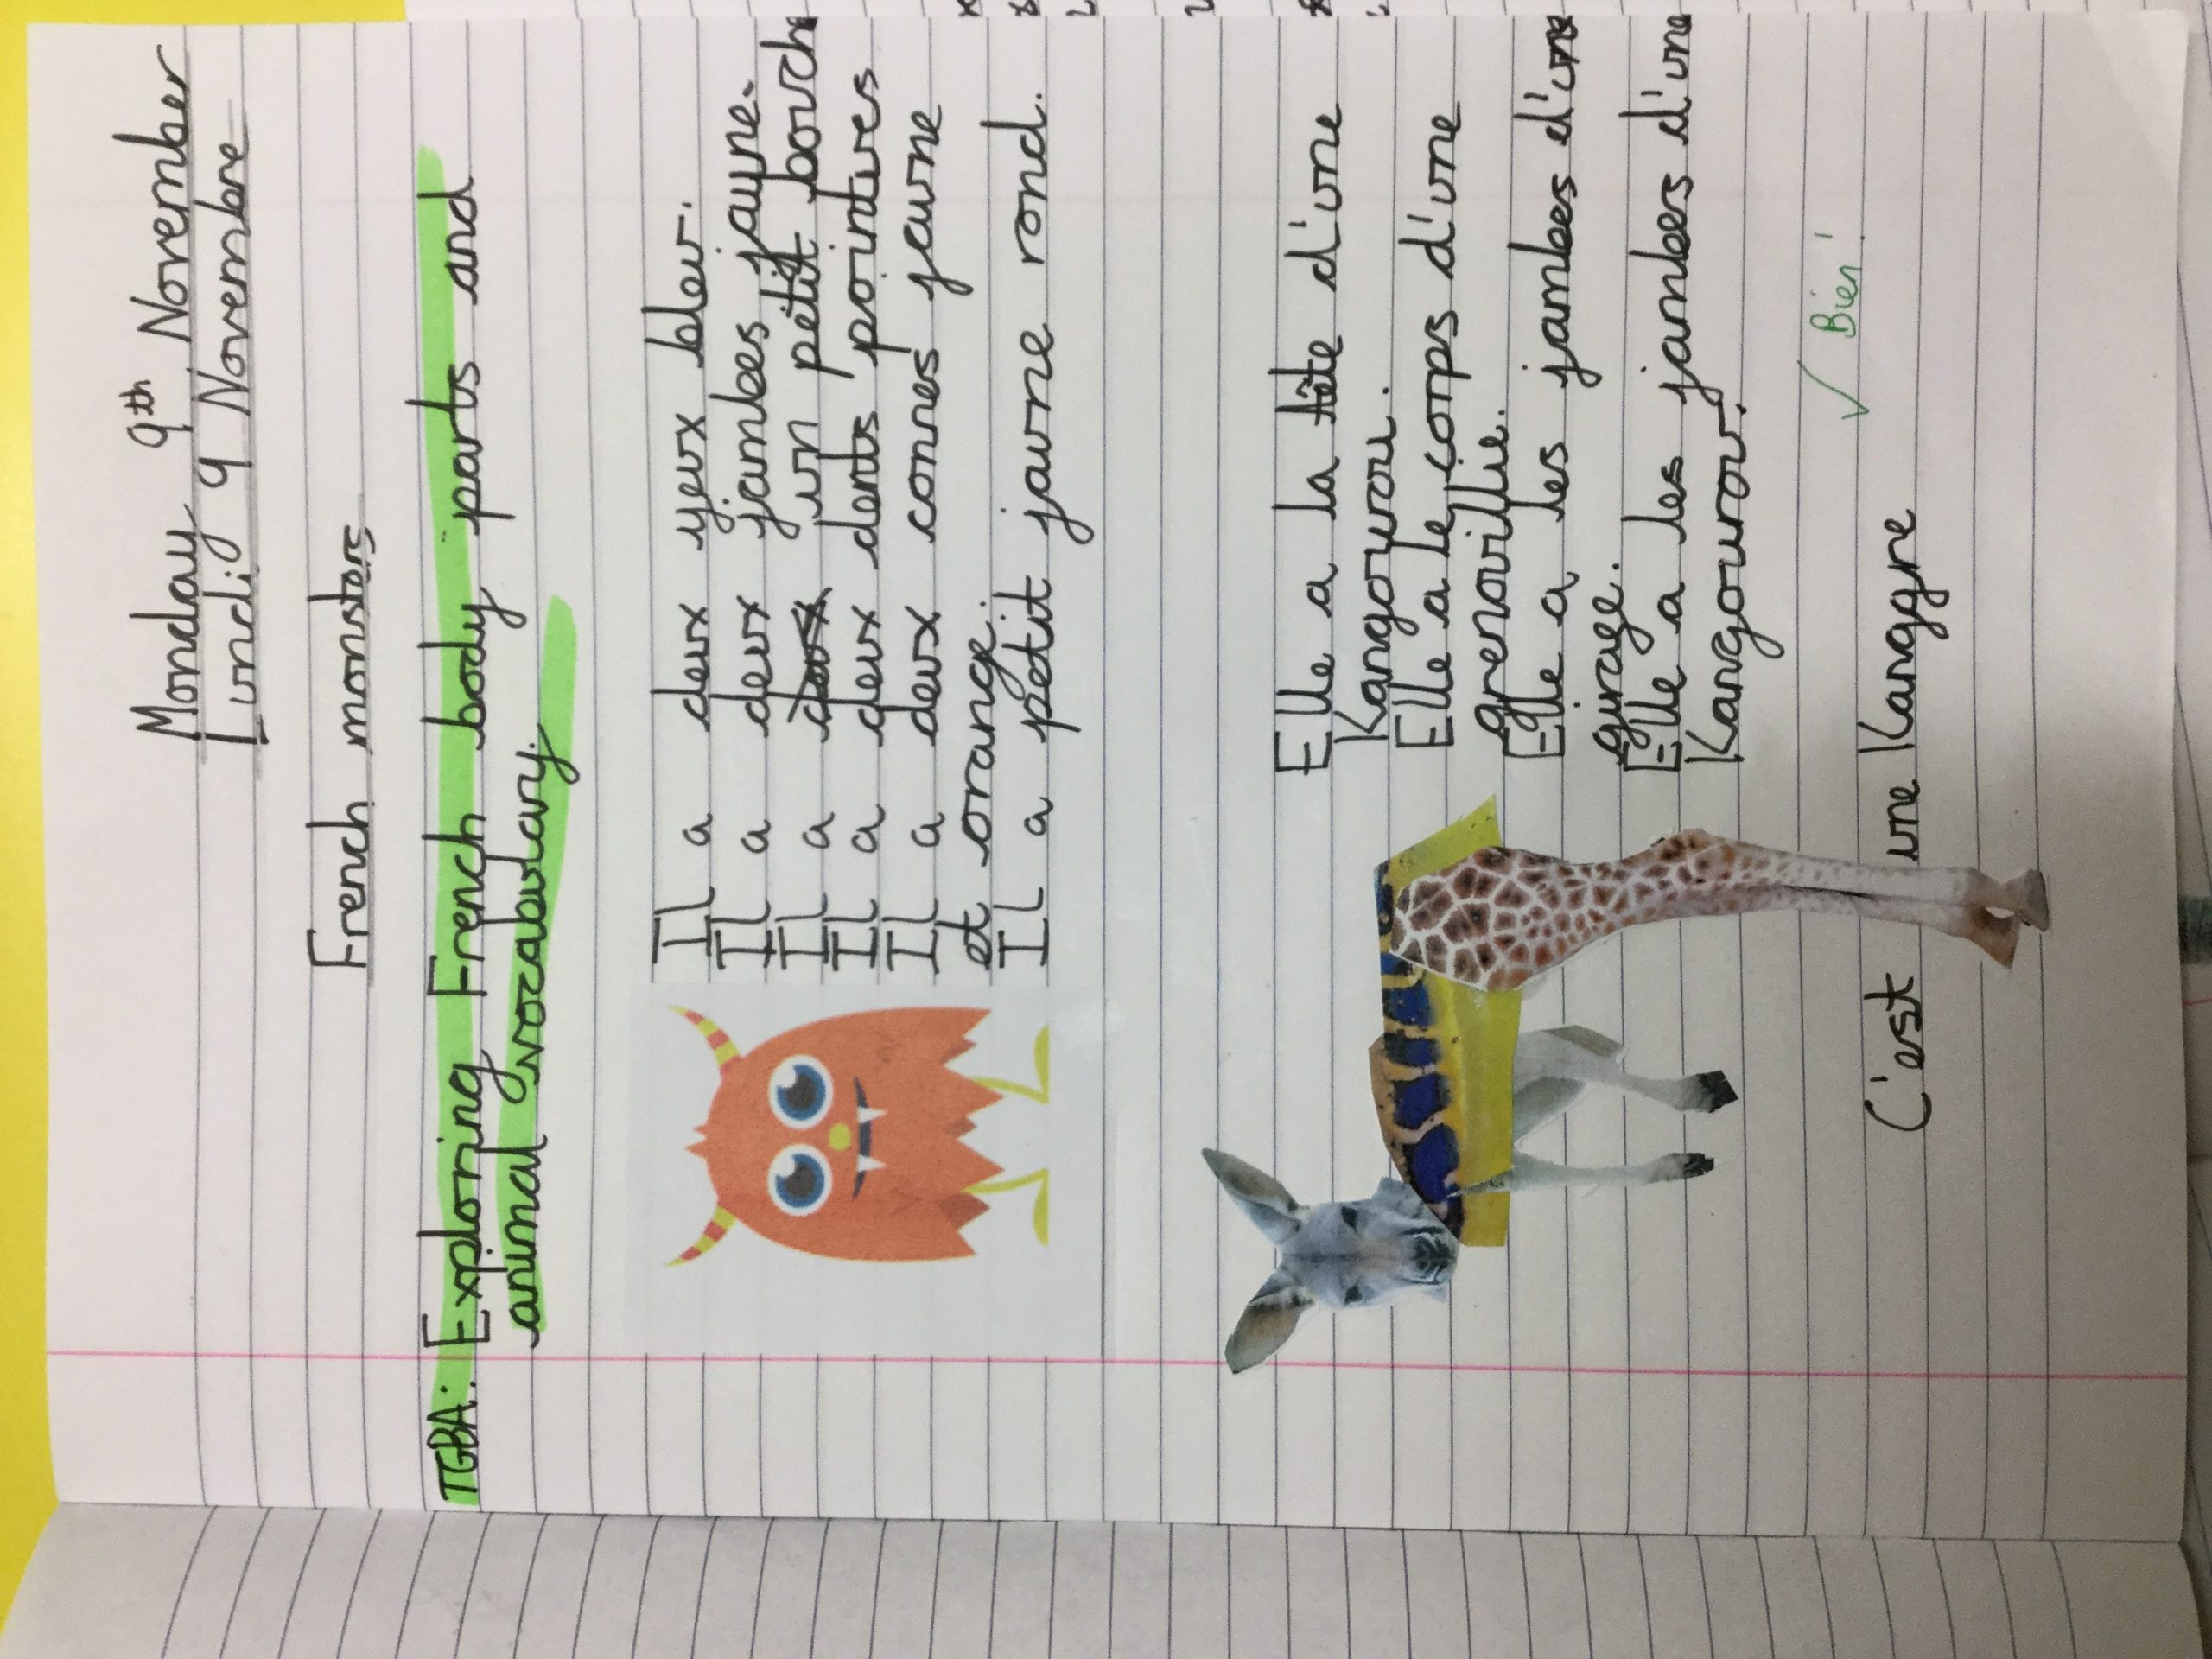 Monday 9th November
Lundi 9 Novembre
French monstors
TGBA: Exploring French body parts and
animal vocabulary.
IL a deux yeux bleu.
IL a deux jambes jaune.
IL a un petit bouch
IL a deux dents pointues
IL a deux cornes jaune
et orange.
IL a petit jaune rond.
Elle a la tête d'une
Kangourou.
Elle a le corps d'une
grenouillie.
Elle a les jambes d'une
girage.
Elle a les jambes d'une
Kangourou.
✓ Bien!
C'est une Kanggre